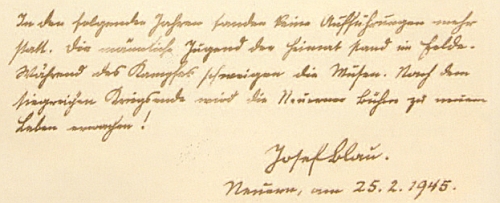 In den folgenden Jahren fanden keine Aufführungen mehr
statt. Die männliche Jugend der Heimat stand im Felde.
Während des Kampfes schweigen die Musen. Nach dem
siegreichen Kriegsende wird die Neuerner Bühne zu neuem
Leben erwachen!
Josef Blau.
Neuern, am 25.2.1945.